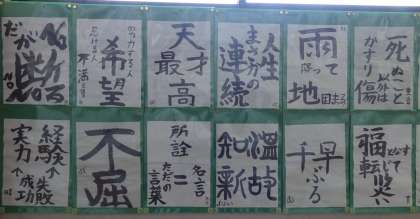 死ぬこと
以外は
かすり傷
雨降って
地固まる
人生
まさかの
連続
天才
最高
努力する人
希望
怠ける人
不満
だが断る
福転じて
千早ぶる
温故
知新
所詮
名言
=
ただの
言葉
不屈
経験↗失敗
実力↑成功